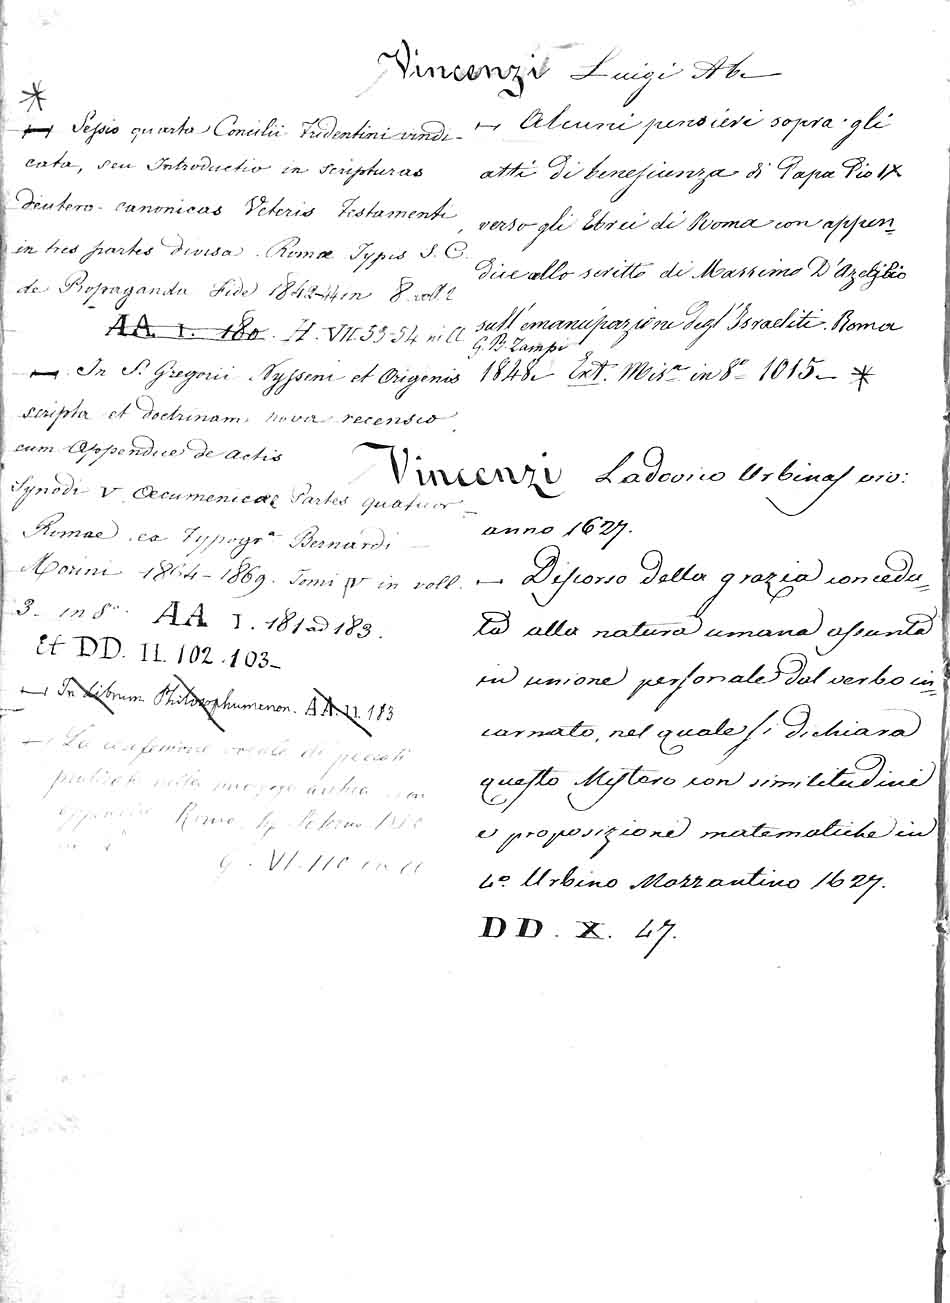 Vincenzi Luigi Ab.
— Alcuni pensieri sopra gli
atti di beneficenza di Papa Pio IX
verso gli Ebrei di Roma con appen=
dice allo scritto di Massimo D'Azeglio
sull'emancipazione degl'Israeliti. Roma
G. B. Zampi
1848. Ext. Misc. in 8° 1015. *
*
— Sessio quarta Concilii Tridentini vindi-
cata, seu Introductio in scripturas
deutero-canonicas Veteris Testamenti,
in tres partes divisa. Romæ Typis S. C.
de Propaganda Fide 1842-44 in 8. voll. 2
AA. I. 180. H. VII. 53-54
— In S. Gregorii Nysseni et Origenis
scripta et doctrinam nova recensio,
cum Appendice de actis
Synodi V. Œcumenicæ Partes quatuor
Romae ex Typogr. Bernardi
Morini 1864-1869. Tomi IV in voll.
3. in 8° AA I. 181 ad 183.
Et DD. II. 102. 103-
— In Librum Philosophumenon. AA. II. 183
— La confessione vocale di peccati
Roma
G. VI. 110
Vincenzi Lodovico Urbinas viv:
anno 1627.
— Discorso della grazia concedu=
ta alla natura umana assunta
in unione personale dal verbo in=
carnato, nel quale si dichiara
questo Mistero con similitudini
e proposizione matematiche in
4° Urbino Mazzantino 1627.
DD. X. 47.